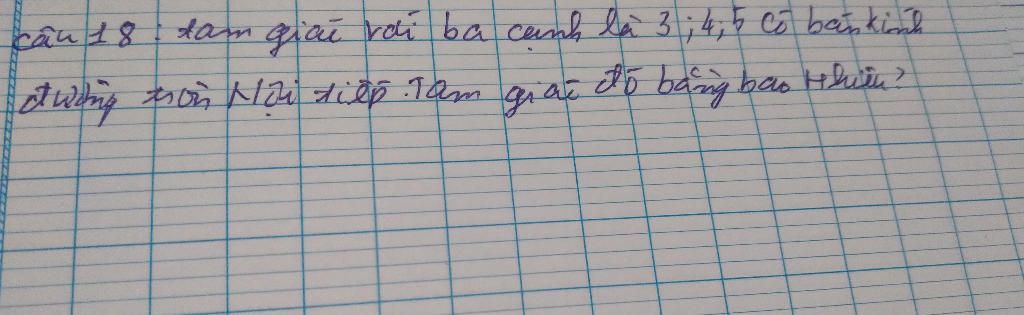 câu 18 : tam giác với ba cạnh là 3 ; 4 ; 5 Có bán kính
đường tròn Nội tiếp . Tam giác đó bằng bao Nhiêu ?